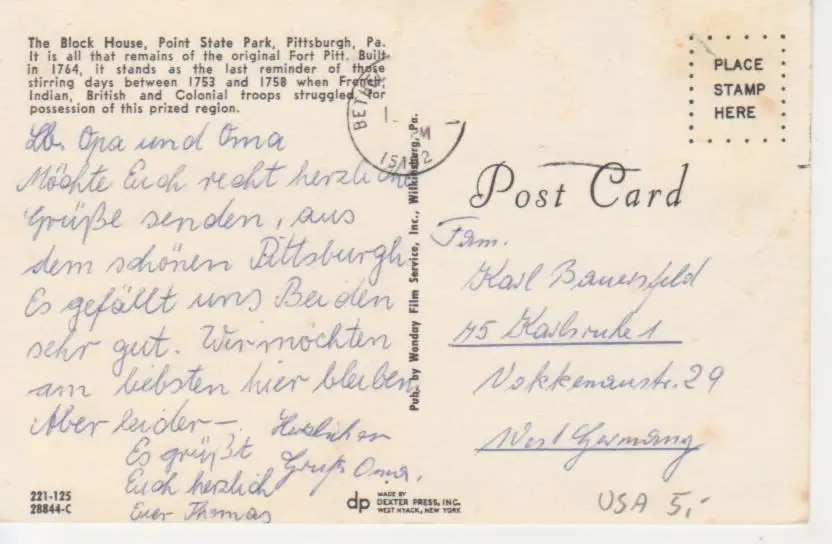 The Block House, Point State Park, Pittsburgh, Pa.
It is all that remains of the original Fort Pitt. Built
in 1764, it stands as the last reminder of those
stirring days between 1753 and 1758 when French,
Indian, British and Colonial troops struggled for
possession of this prized region.
Lb. Opa und Oma
Möchte Euch recht herzliche
Grüße senden, aus
dem schönen Pittsburgh.
Es gefällt uns Beiden
sehr gut. Wir möchten
am liebsten hier bleiben
Aber leider —.
Es grüßt
Euch herzlich
Euer Thomas
Herzlichen
Gruß Oma.
221-125
28844-C
BETH
PM
Pub. by Wanday Film Service, Inc., Wilkinsburg, Pa.
dp MADE BY
DEXTER PRESS, INC.
WEST NYACK, NEW YORK
PLACE
STAMP
HERE
Post Card
Fam.
Karl Bauersfeld
75 Karlsruhe 1
29
West Germany
USA 5,-